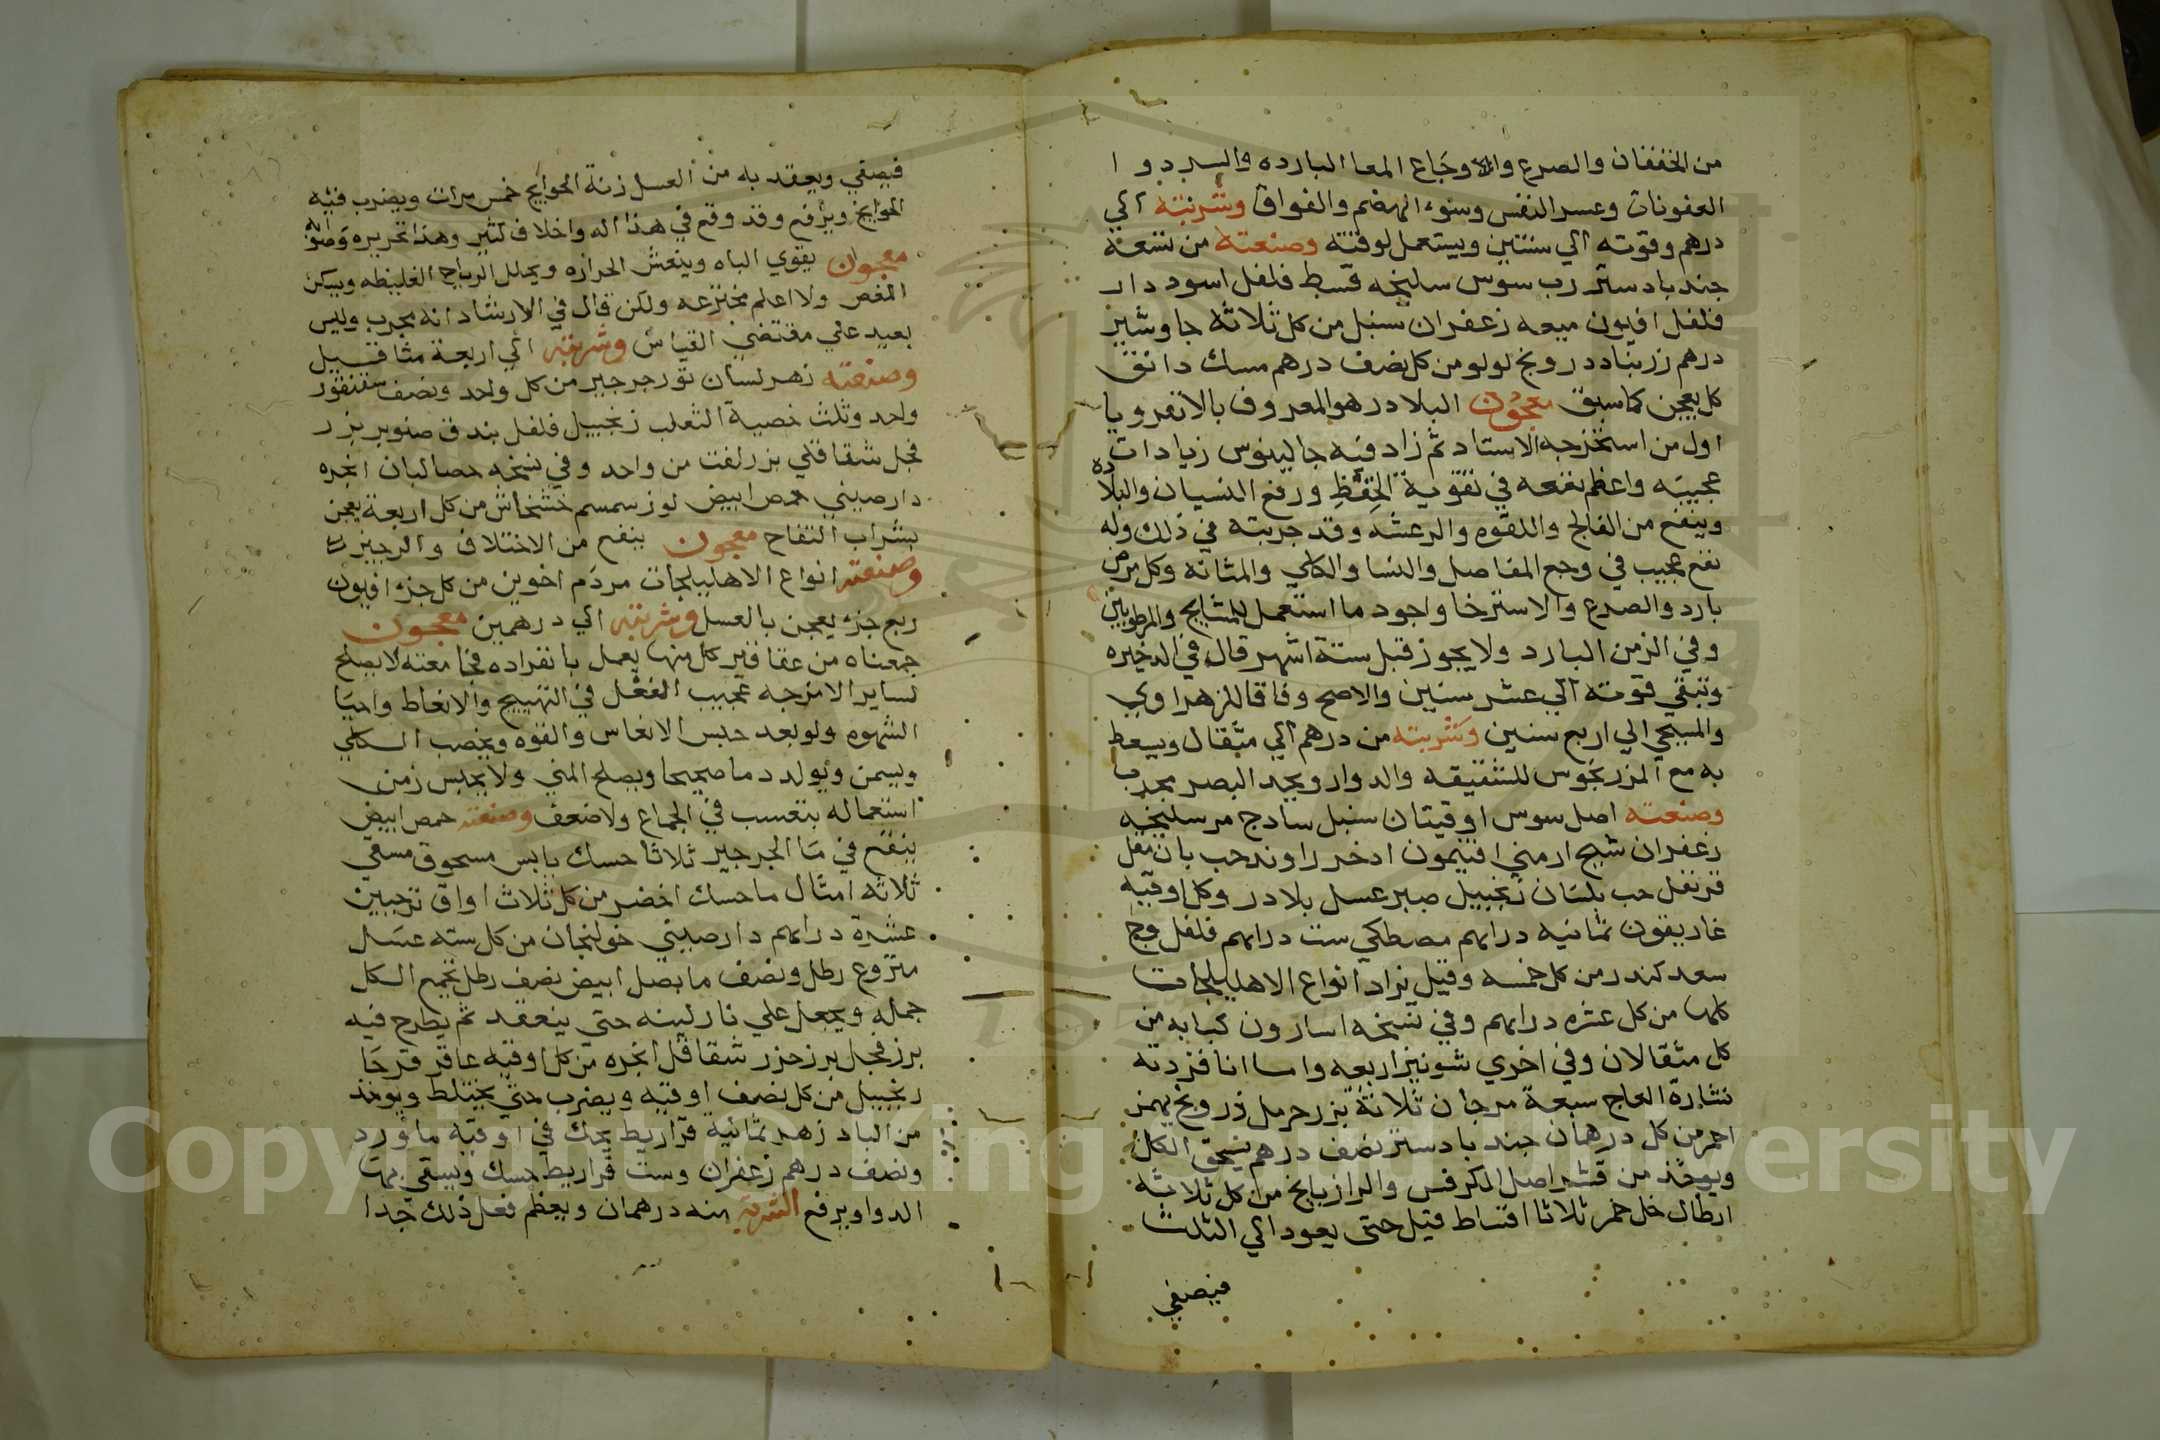 من الخفقان والصرع والاوجاع المعا البارده والسدد و ا
العفونات وعسر النفس وسوء الهضم والفواق وشربته الي
درهم وقوته الي سنتين ويستعمل لوقته وصنعته من تسعة
جندبادستر رب سوس سليخه قسط فلفل اسود دار
فلفل افيون ميعه زعفران سنبل من كل ثلاثة جاوشير
درهم زرنباد درونج لولو من كل نصف درهم مسك دانق
كل يعجن كما سبق معجون البلادر هو المعروف بالانقرويا
اول من استخرجه الاستاد ثم زاد فيه جالينوس زيادات
عجيبه واعظم نفعه في تقوية الحفظ ورفع النسيان والبلاده
وينفع من الفالج واللقوه والرعشه وقد جربته في ذلك وله
نفع عجيب في وجع المفاصل والنسا والكلي والمثانه وكل مرض
بارد والصرع والاسترخا واجود ما استعمل للمشايخ والمرطوبين
وفي الزمن البارد ولا يجوز قبل ستة اشهر قال في الدخيره
وتبقي قوته الي عشر سنين والاصح وفاقا للزهراوي
والمسيحي الي اربع سنين وشربته من درهم الي مثقال ويسعط
به مع المزرنجوس للشقيقه والدوار ويحد البصر مجرب
وصنعته اصل سوس اوقيتان سنبل سادج مر سليخه
زعفران شيح ارمني افتيمون ادخر راوند حب بان مقل
قرنفل حب بلسان زنجبيل صبر عسل بلادر وكل اوقيه
غاريقون ثمانيه دراهم مصطكي ست دراهم فلفل وج
سعد كندر من كل خمسه وقيل يزاد انواع الاهليلجات
كلها من كل عشره دراهم وفي نسخه اسارون كبابه من
كل مثقالان وفي اخري شونيز اربعه واما انا فزدته
نشارة العاج سبعة مرجان ثلاثة بزر حرمل درونج بهمن
احمر من كل درهمان جندبادستر نصف درهم يسحق الكل
ويوخذ من قشر اصل الكرفس والرازيانج من كل ثلاثة
ارطال خل خمر ثلاثا اقساط قيل حتى يعود الي الثلث
فيصفي
فيصفي ويعقد به من العسل زنة الحوايج خمس مرات ويضرب فيه
الحوايج ويرفع وقد وقع في هذا اله واخلاف كثير وهذا تحريره وصوابه
معجون يقوي الباه وينعش الحراره ويحلل الرياح الغليظه ويسكن
المغص ولا اعلم مخترعه ولكن قال في الارشاد انه مجرب وليس
بعيد علي مقتضي القياس وشربته الي اربعة مثاقيل
وصنعته زهر لسان ثور جرجير من كل واحد ونصف سقنقور
واحد وثلث خصية الثعلب زنجبيل فلفل بندق صنوبر بزر
فجل شقاقلي بزر لفت من واحد وفي نسخه حصالبان انجره
دارصيني حمص ابيض لوز سمسم خشخاش من كل اربعة يعجن
بشراب التفاح معجون ينفع من الاختلاف والزحير
وصنعته انواع الاهليلجات مر دم اخوين من كل جزء افيون
ربع جزء يعجن بالعسل وشربته الي درهمين معجون
جمعناه من عقاقير كل منها يعمل بانفراده فجا معته لا يصلح
لساير الامزجه عجيب الفعل في التهييج والانعاظ واحيا
الشهوه ولو بعد حبس الانفاس والقوه ويخصب الكلي
ويسمن ويولد دما صحيحا ويصلح المني ولا يحبس زمن
استعماله بتعسب في الجماع ولا ضعف وصنعته حمص ابيض
ينقع في ما الجرجير ثلاثا حسك يابس مسحوق مسقي
ثلاثه امثال ما حسك اخضر من كل ثلاث اواق ترجبين
عشرة دراهم دارصيني خولنجان من كل سته عسل
منزوع رطل ونصف ما بصل ابيض نصف رطل يجمع الكل
جمله ويجعل علي نار لينه حتى ينعقد ثم يطرح فيه
برز فجل برز جزر شقاقل انجره من كل اوقيه عاقر قرحا
زنجبيل من كل نصف اوقيه ويضرب حتى يختلط ويوخذ
من الباد زهر ثمانية قراريط يحك في اوقيه ما ورد
ونصف درهم زعفران وست قراريط مسك ويسقي بهت
الدوا ويرفع الشربه منه درهمان ويعظم فعل ذلك جدا
Copyright © King Saud University